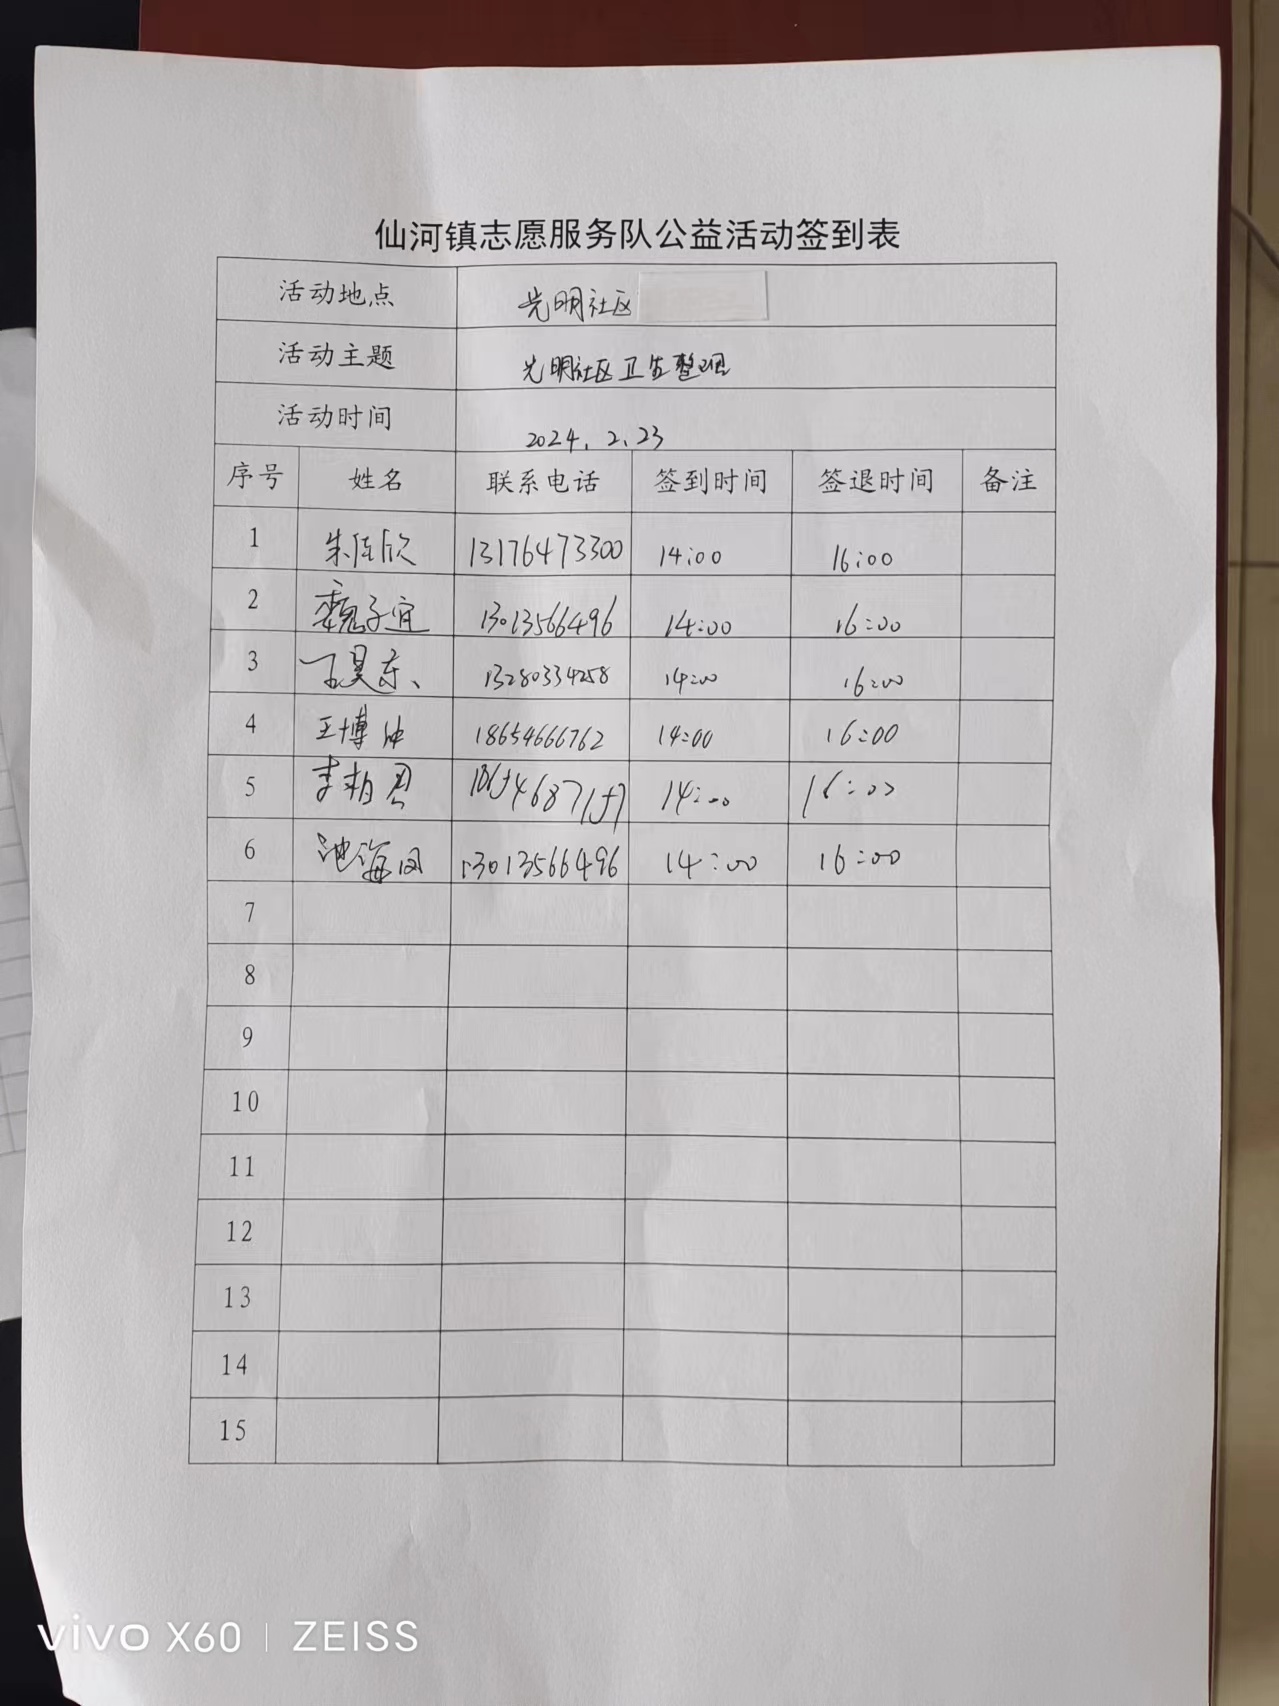 仙河镇志愿服务队公益活动签到表
活动地点 光明社区
活动主题 光明社区卫生整理
活动时间 2024.2.23
序号 姓名 联系电话 签到时间 签退时间 备注
1 朱佳欣 13176473300 14:00 16:00
2 魏子宜 13013566496 14:00 16:00
3 13280334258 14:00 16:00
4 王博 18654666762 14:00 16:00
5 李 14:00 16:00
6 池海 13013566496 14:00 16:00
7
8
9
10
11
12
13
14
15
vivo X60 | ZEISS